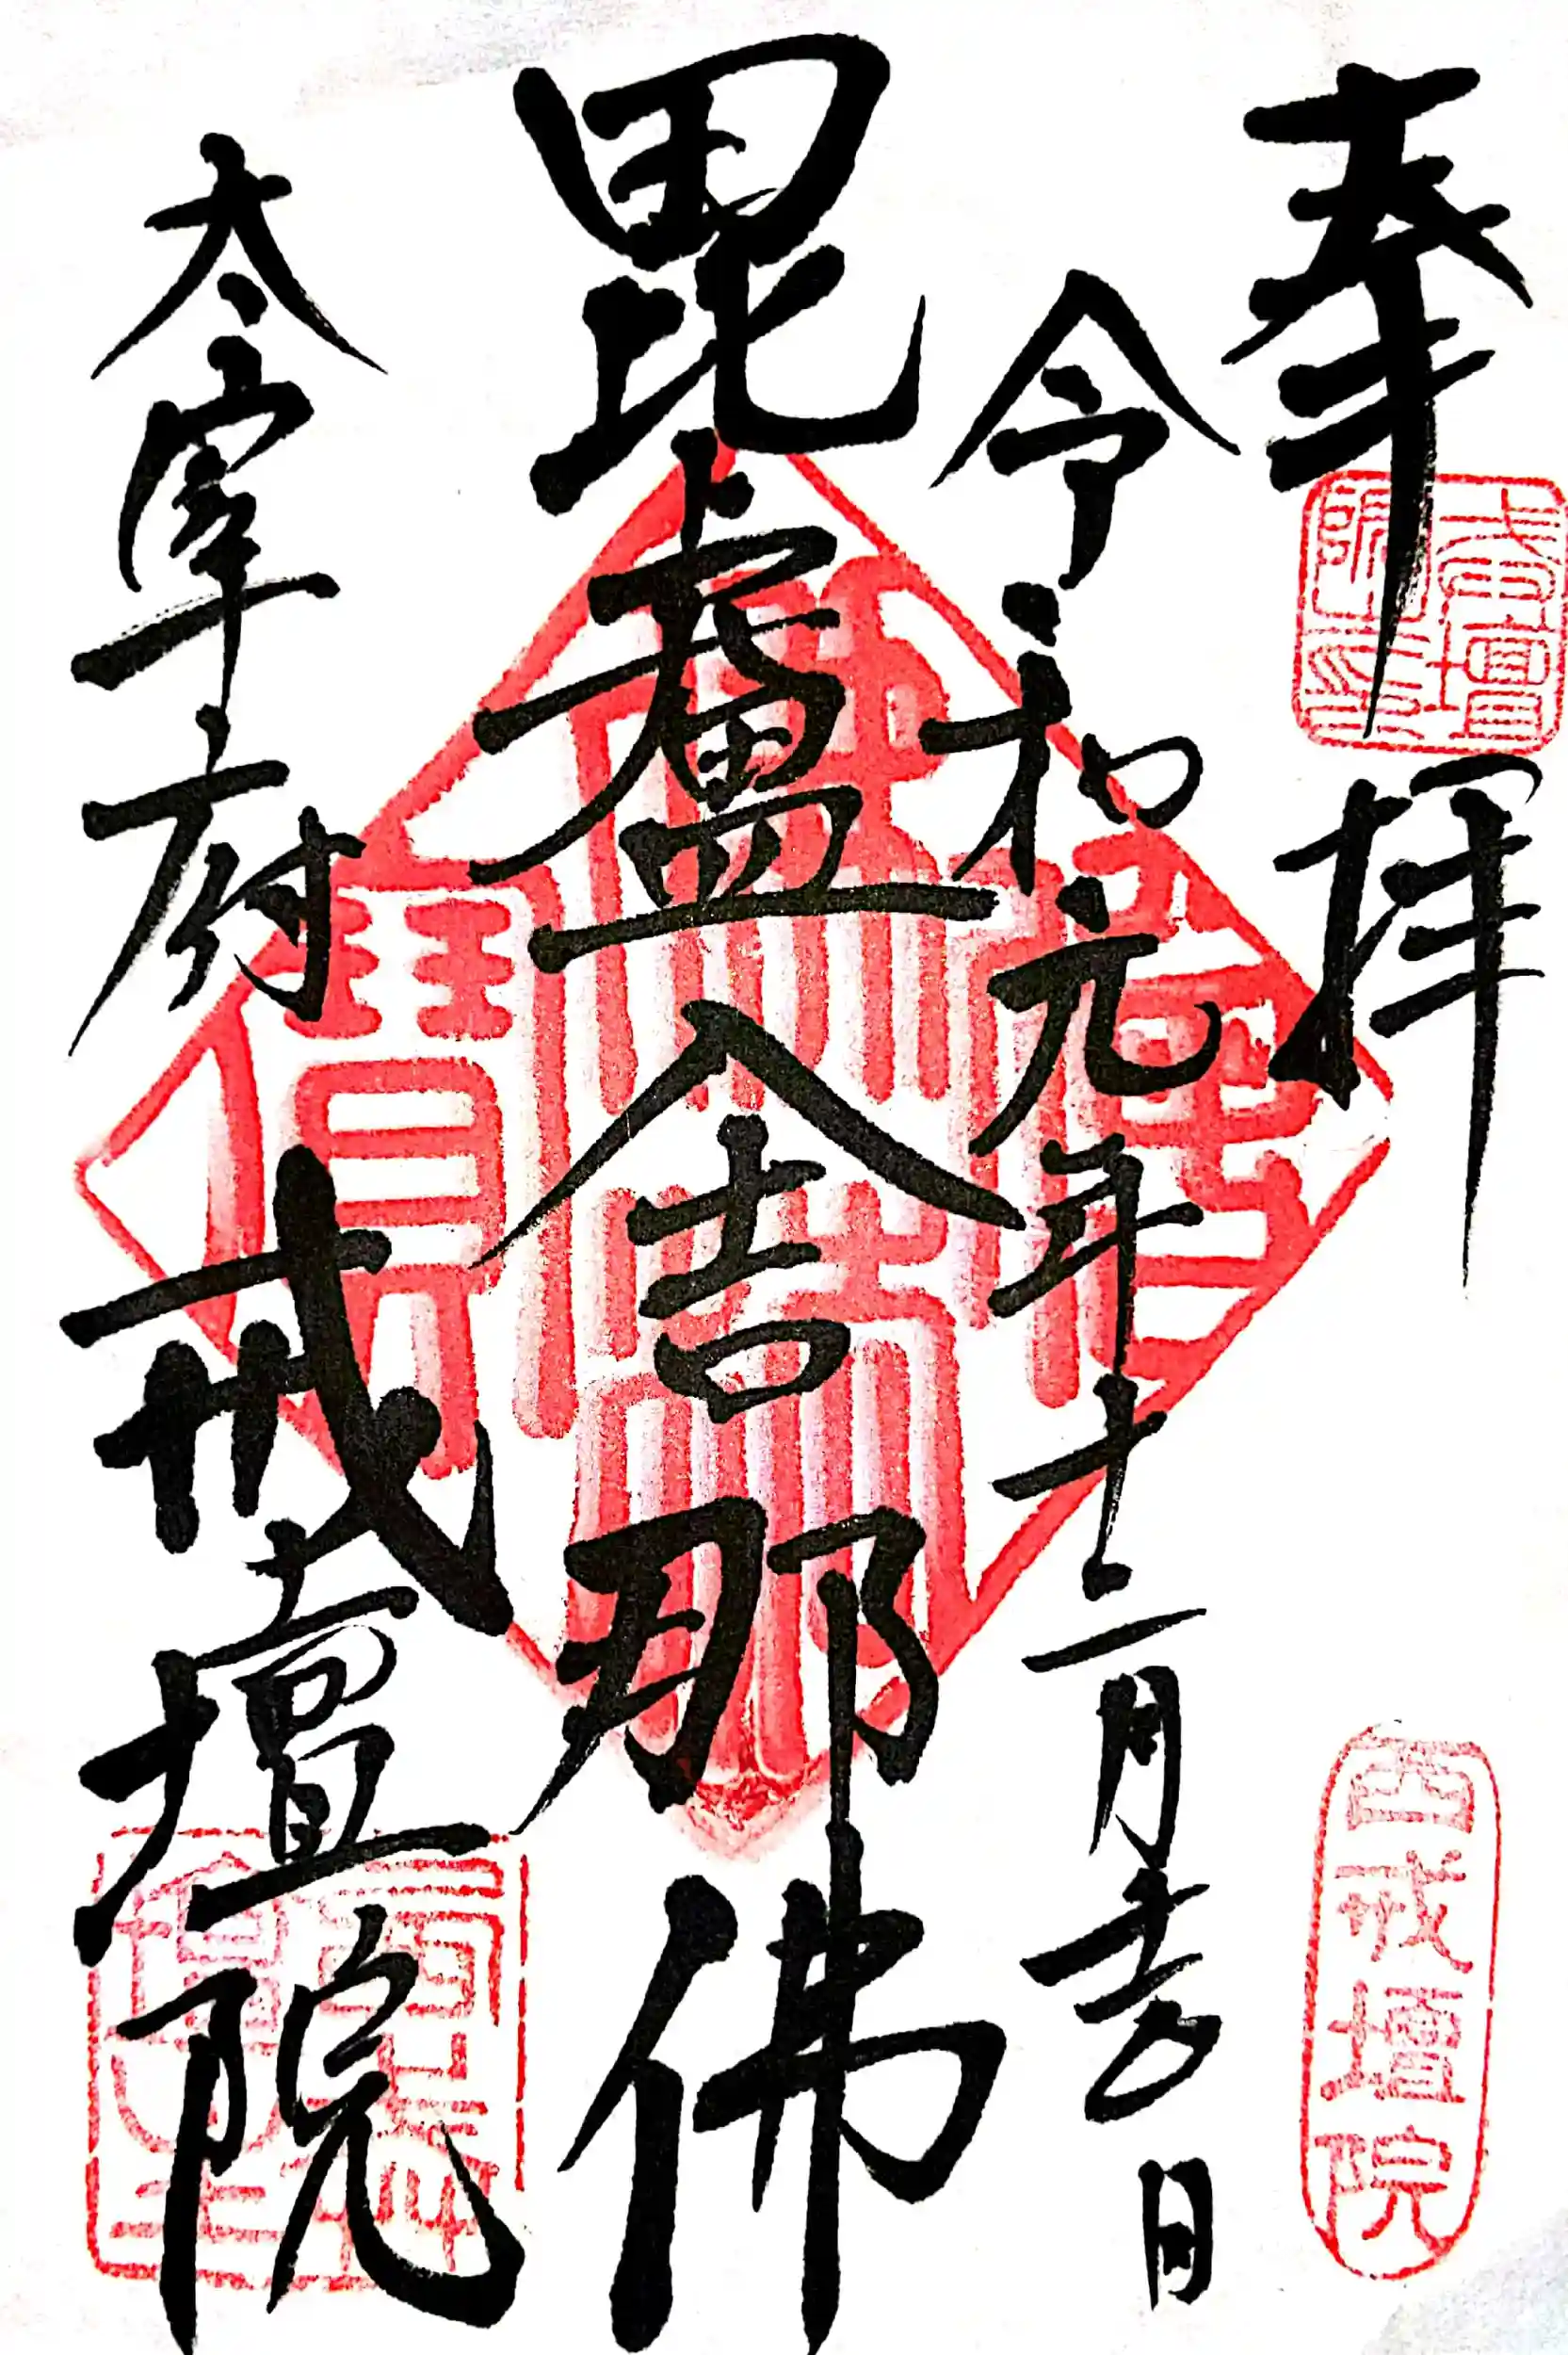 奉拝
令和元年十二月吉日
毘盧舎那佛
太宰府 戒壇院
西戒壇院